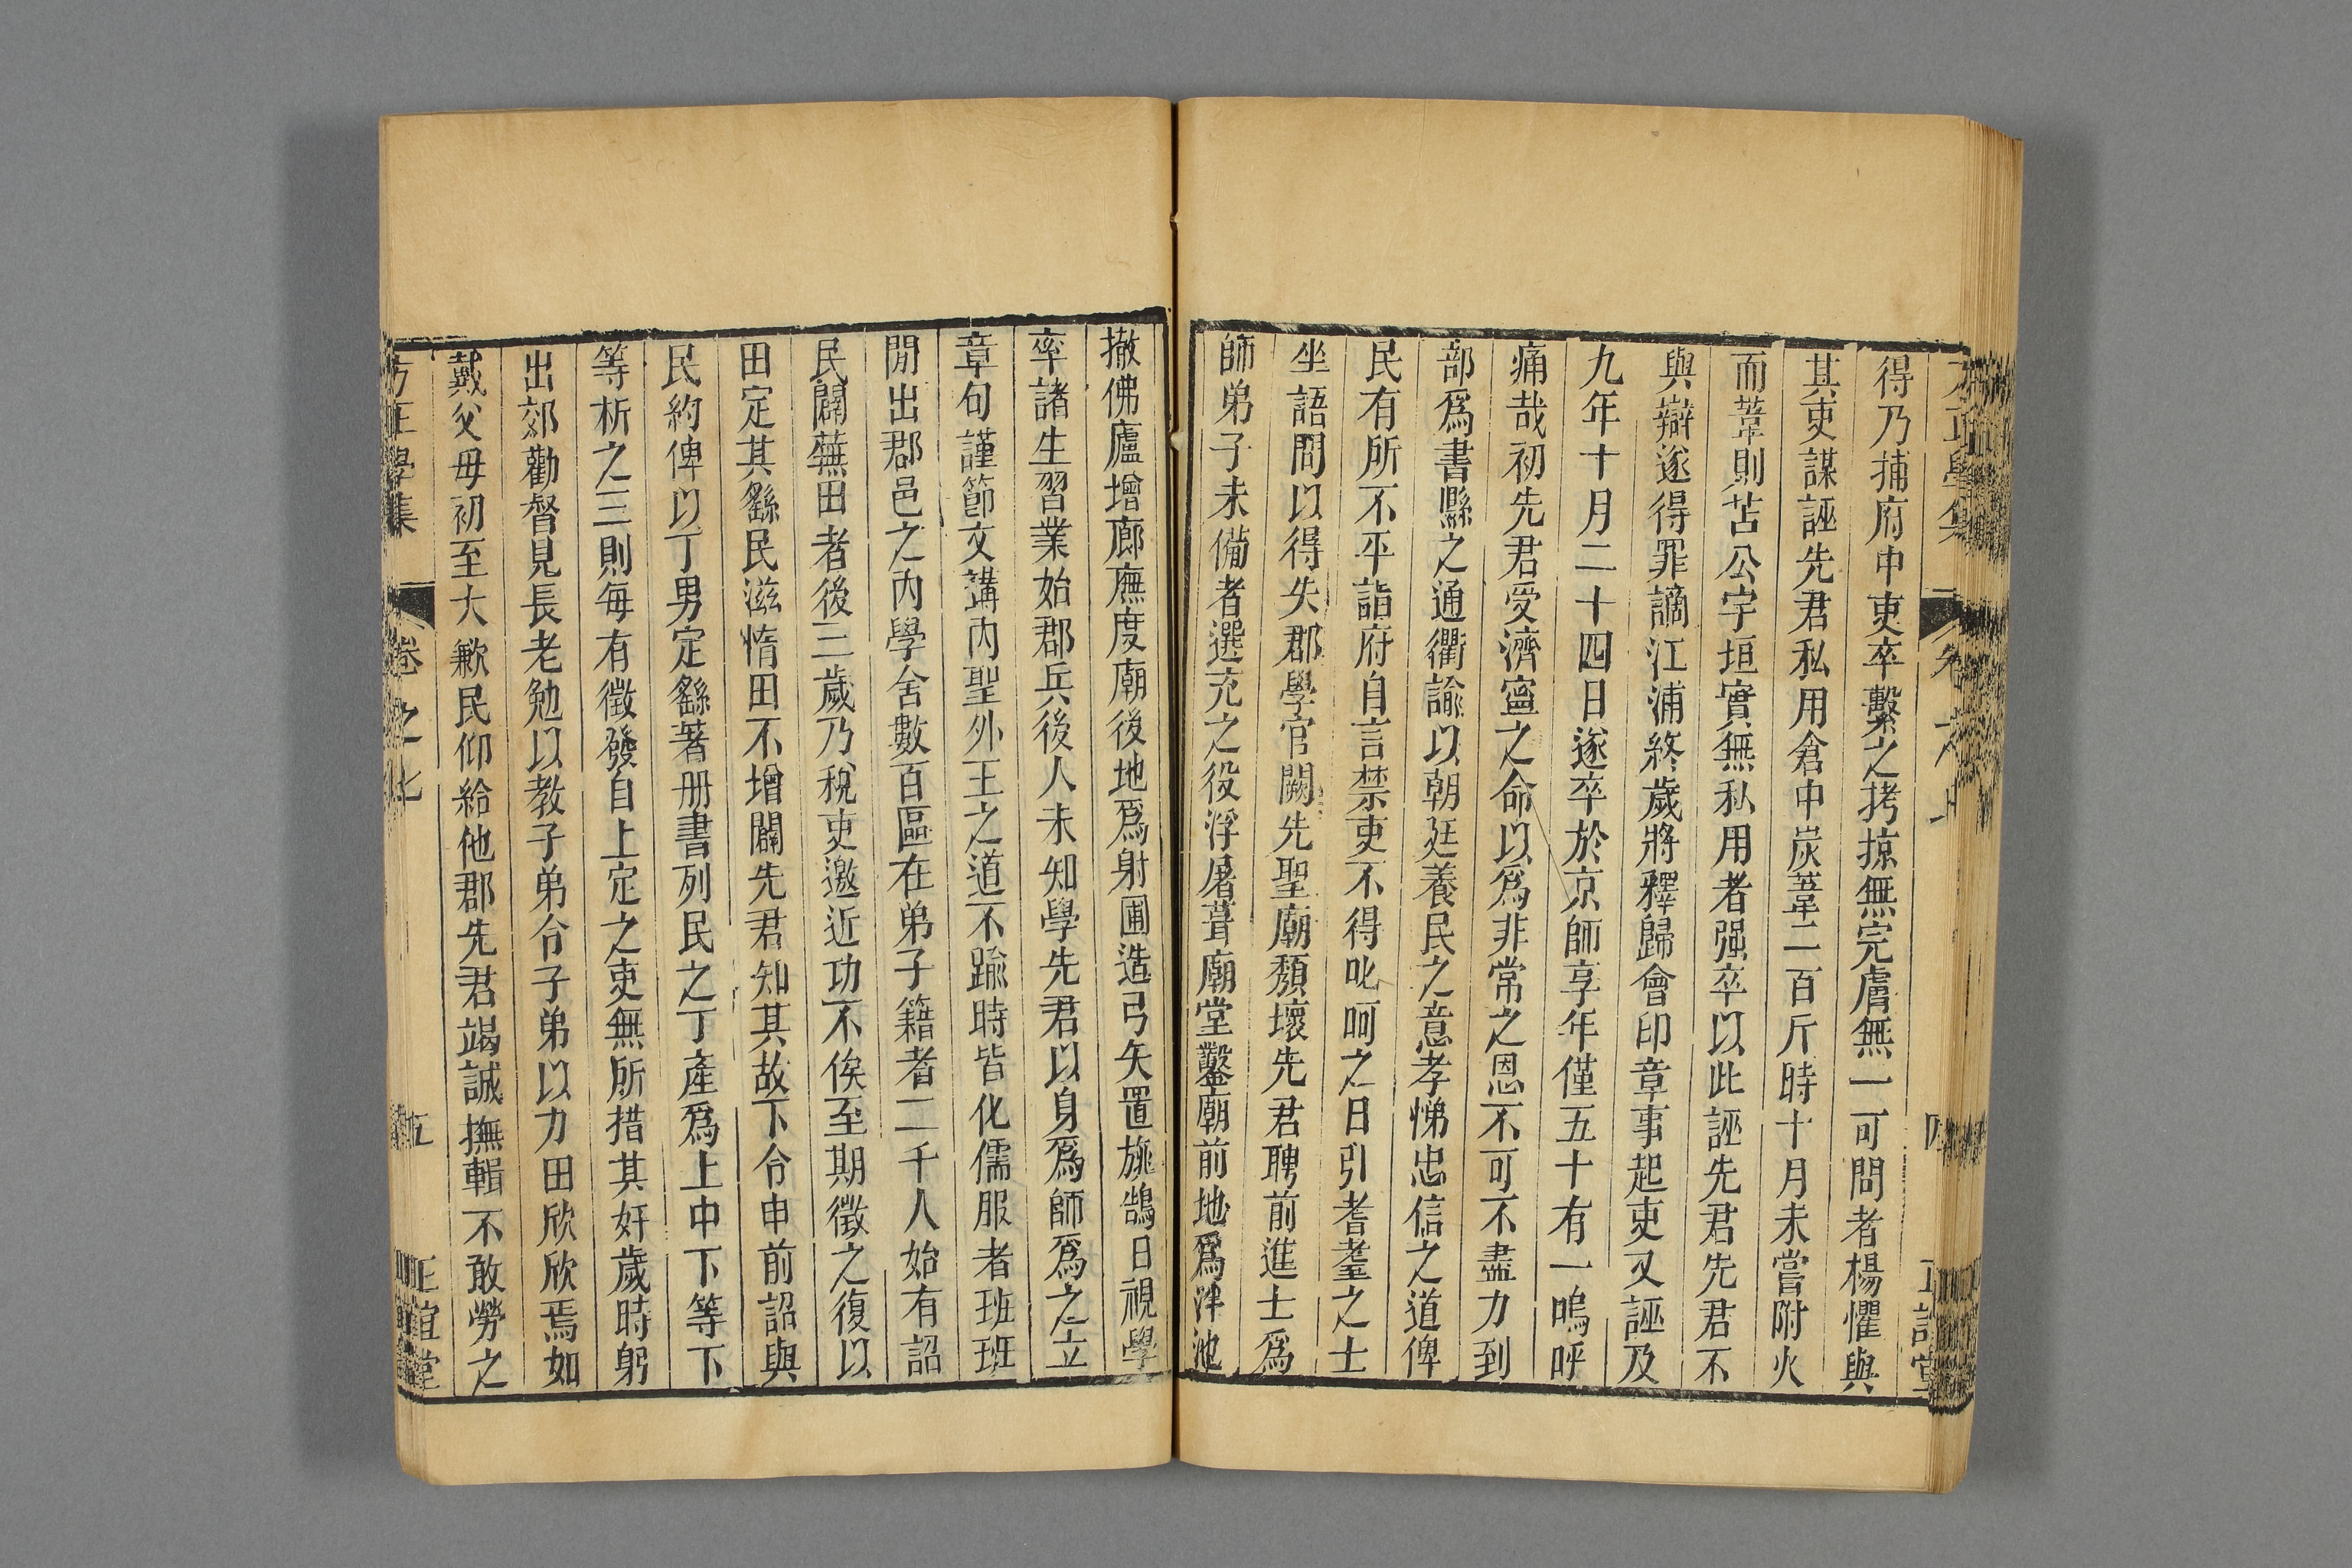 得乃捕府中吏卒繫之拷掠無完膚無一可問者楊懼與
其吏謀誣先君私用倉中炭葦二百斤時十月未嘗附火
而葦則苫公宇垣實無私用者强卒以此誣先君先君不
與辯遂得罪謫江浦終歲將釋歸會印章事起吏又誣及
九年十月二十四日遂卒於京師享年僅五十有一嗚呼
痛哉初先君受濟寧之命以爲非常之恩不可不盡力到
部爲書縣之通衢諭以朝廷養民之意孝悌忠信之道俾
民有所不平詣府自言禁吏不得叱呵之日引耆耋之士
坐語問以得失郡學官闕先聖廟頽壞先君聘前進士爲
師弟子未備者選充之役浮屠葺廟堂鑿廟前地爲泮池
撤佛廬增廊廡度廟後地爲射圃造弓矢置旐鵠日視學
率諸生習業始郡兵後人未知學先君以身爲師爲之立
章句謹節文講內聖外王之道不踰時皆化儒服者班班
閒出郡邑之內學舍數百區在弟子籍者二千人始有詔
民闢蕪田者後三歲乃稅吏邀近功不俟至期徵之復以
田定其繇民滋惰田不增闢先君知其故下令申前詔與
民約俾以丁男定繇著册書列民之丁產爲上中下等下
等析之三則每有徵發自上定之吏無所措其奸歲時躬
出郊勸督見長老勉以教子弟令子弟以力田欣欣焉如
戴父母初至大歉民仰給他郡先君竭誠撫輯不敢勞之
方正學集 卷之七 五 正誼堂